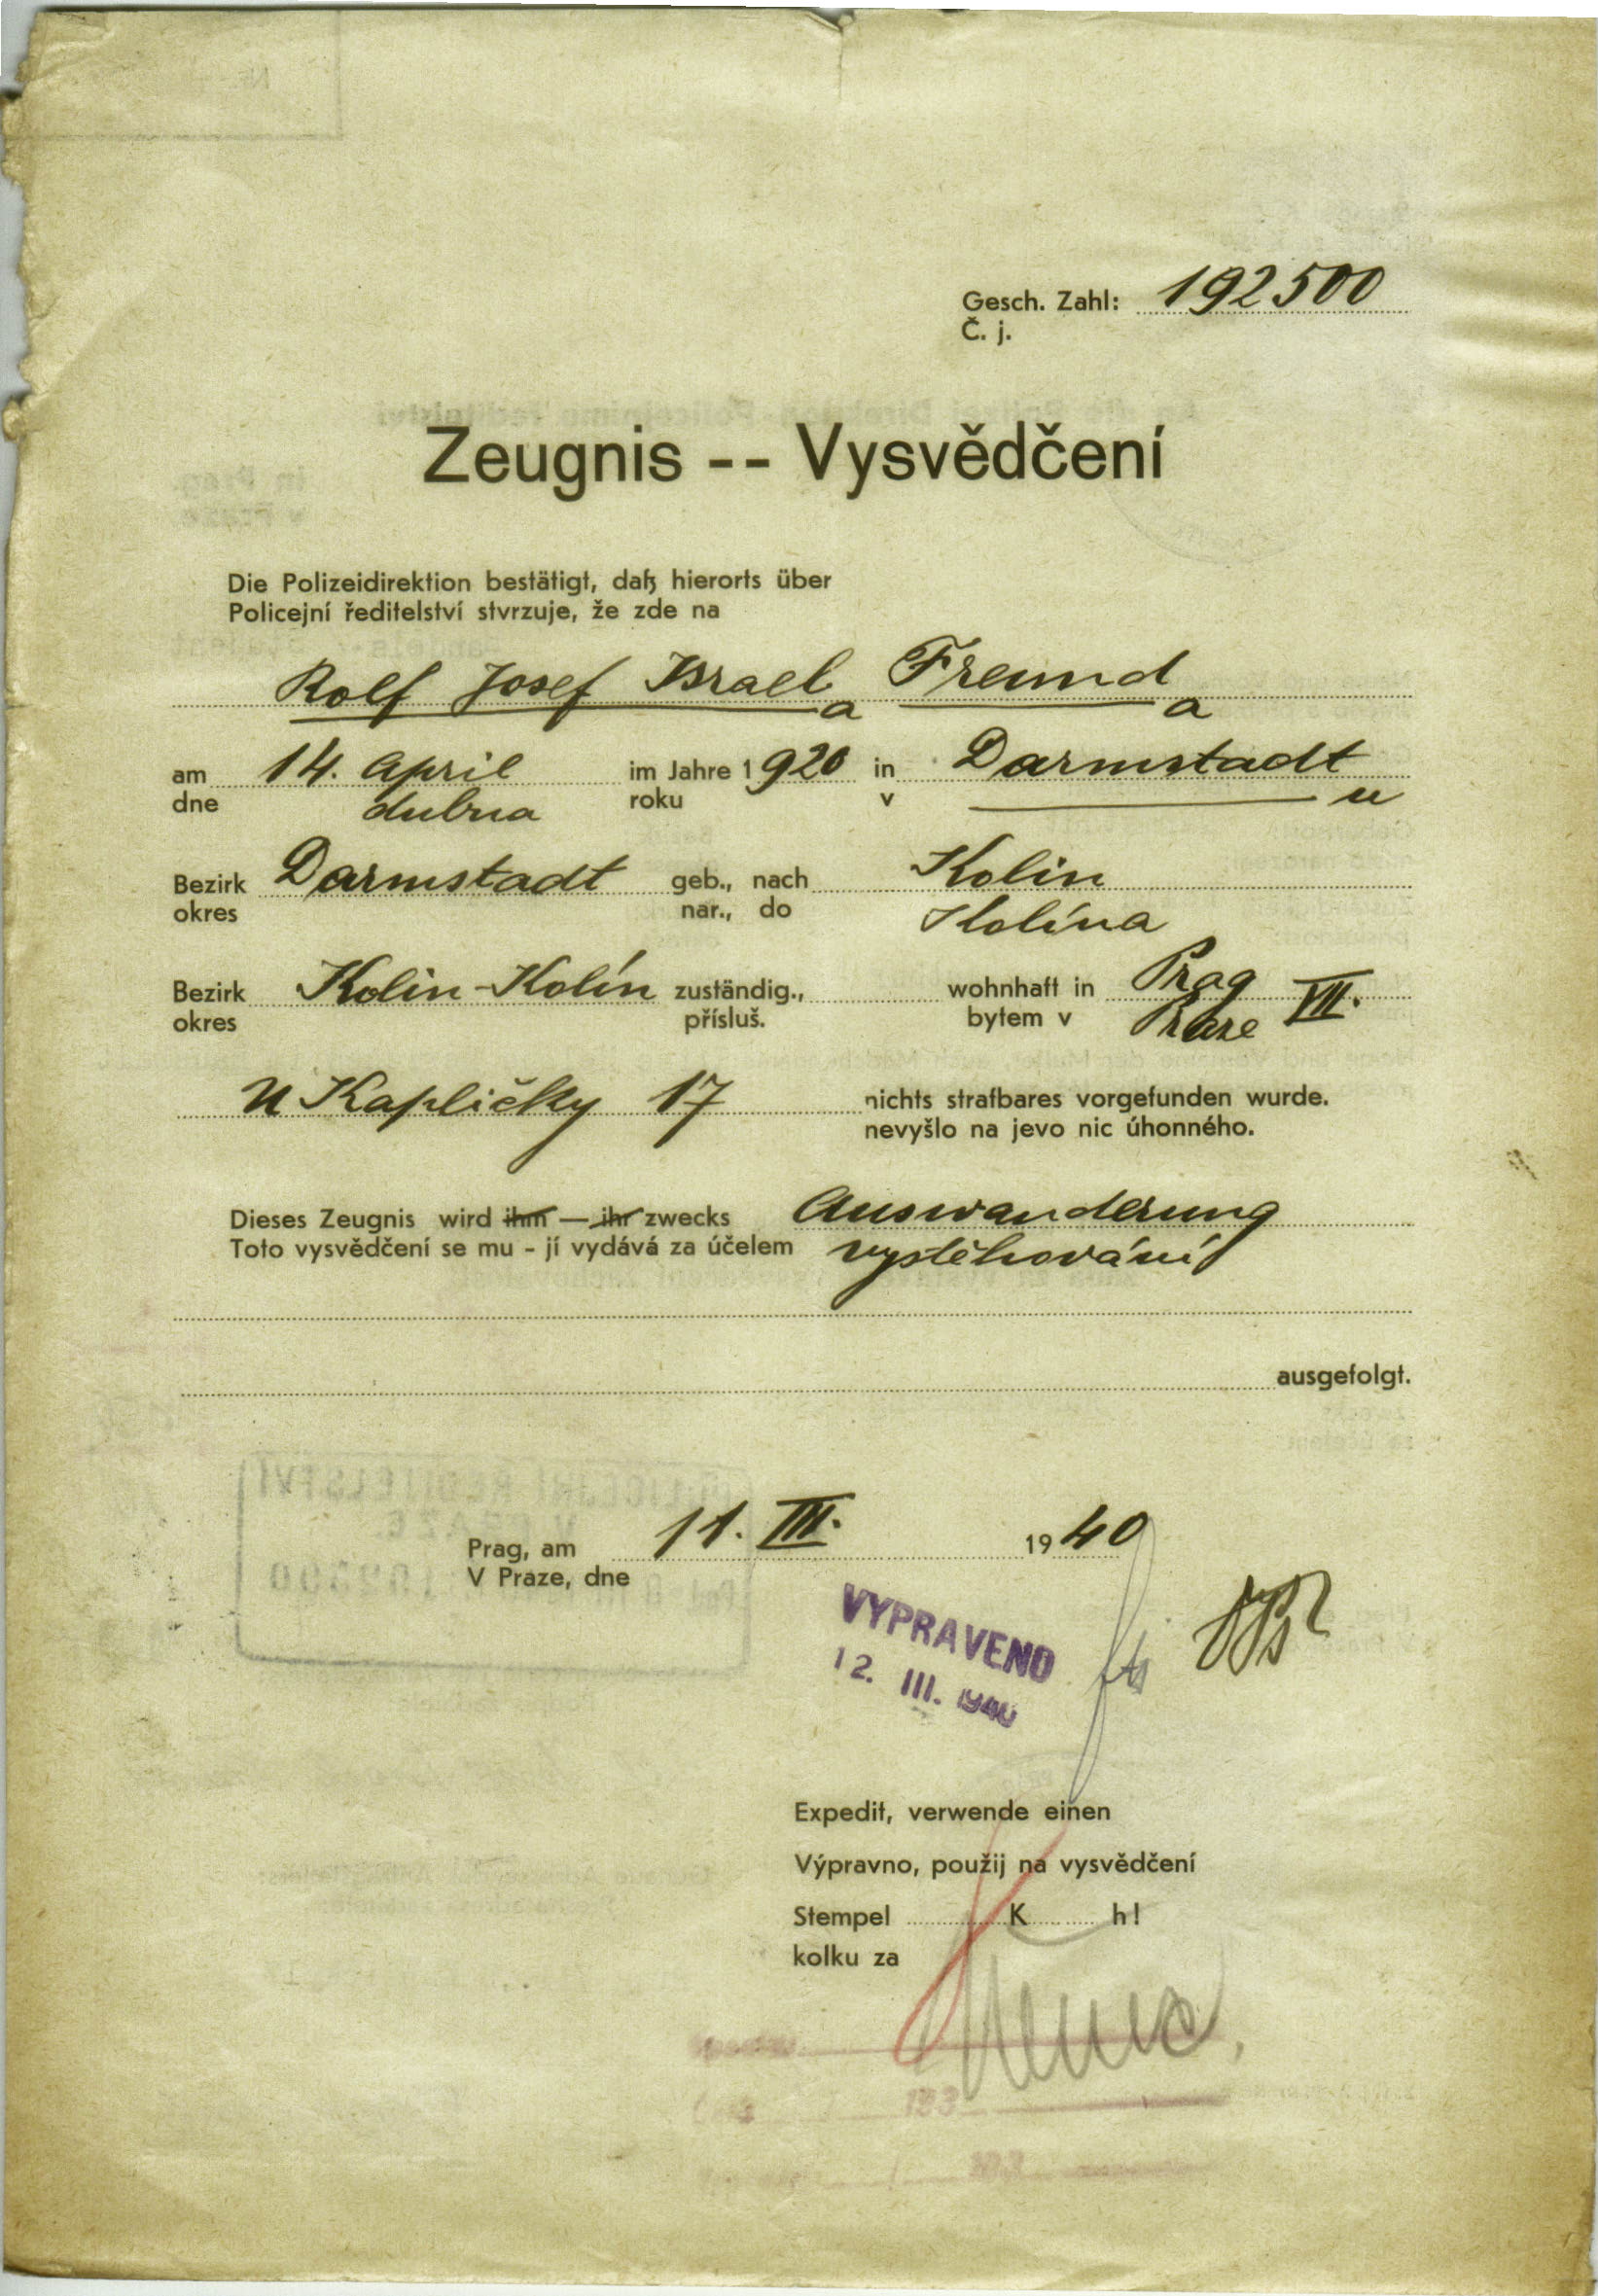 Gesch. Zahl: 192500
Č. j.
Zeugnis -- Vysvědčení
Die Polizeidirektion bestätigt, daß hierorts über
Policejní ředitelství stvrzuje, že zde na
Rolf Josef Israel Freund
a a
am 14. April im Jahre 1920 in Darmstadt
dne dubna roku v u
Bezirk Darmstadt geb., nach Kolin
okres nar., do Kolína
Bezirk Kolin-Kolín zuständig., wohnhaft in Prag VII.
okres přísluš. bytem v Praze
U Kapličky 17 nichts strafbares vorgefunden wurde.
nevyšlo na jevo nic úhonného.
Dieses Zeugnis wird ihm — ihr zwecks Auswanderung
Toto vysvědčení se mu - jí vydává za účelem vystěhování
ausgefolgt.
Prag, am 11. III. 1940
V Praze, dne
VYPRAVENO
12. III. 1940
Expedit, verwende einen
Výpravno, použij na vysvědčení
Stempel K h!
kolku za